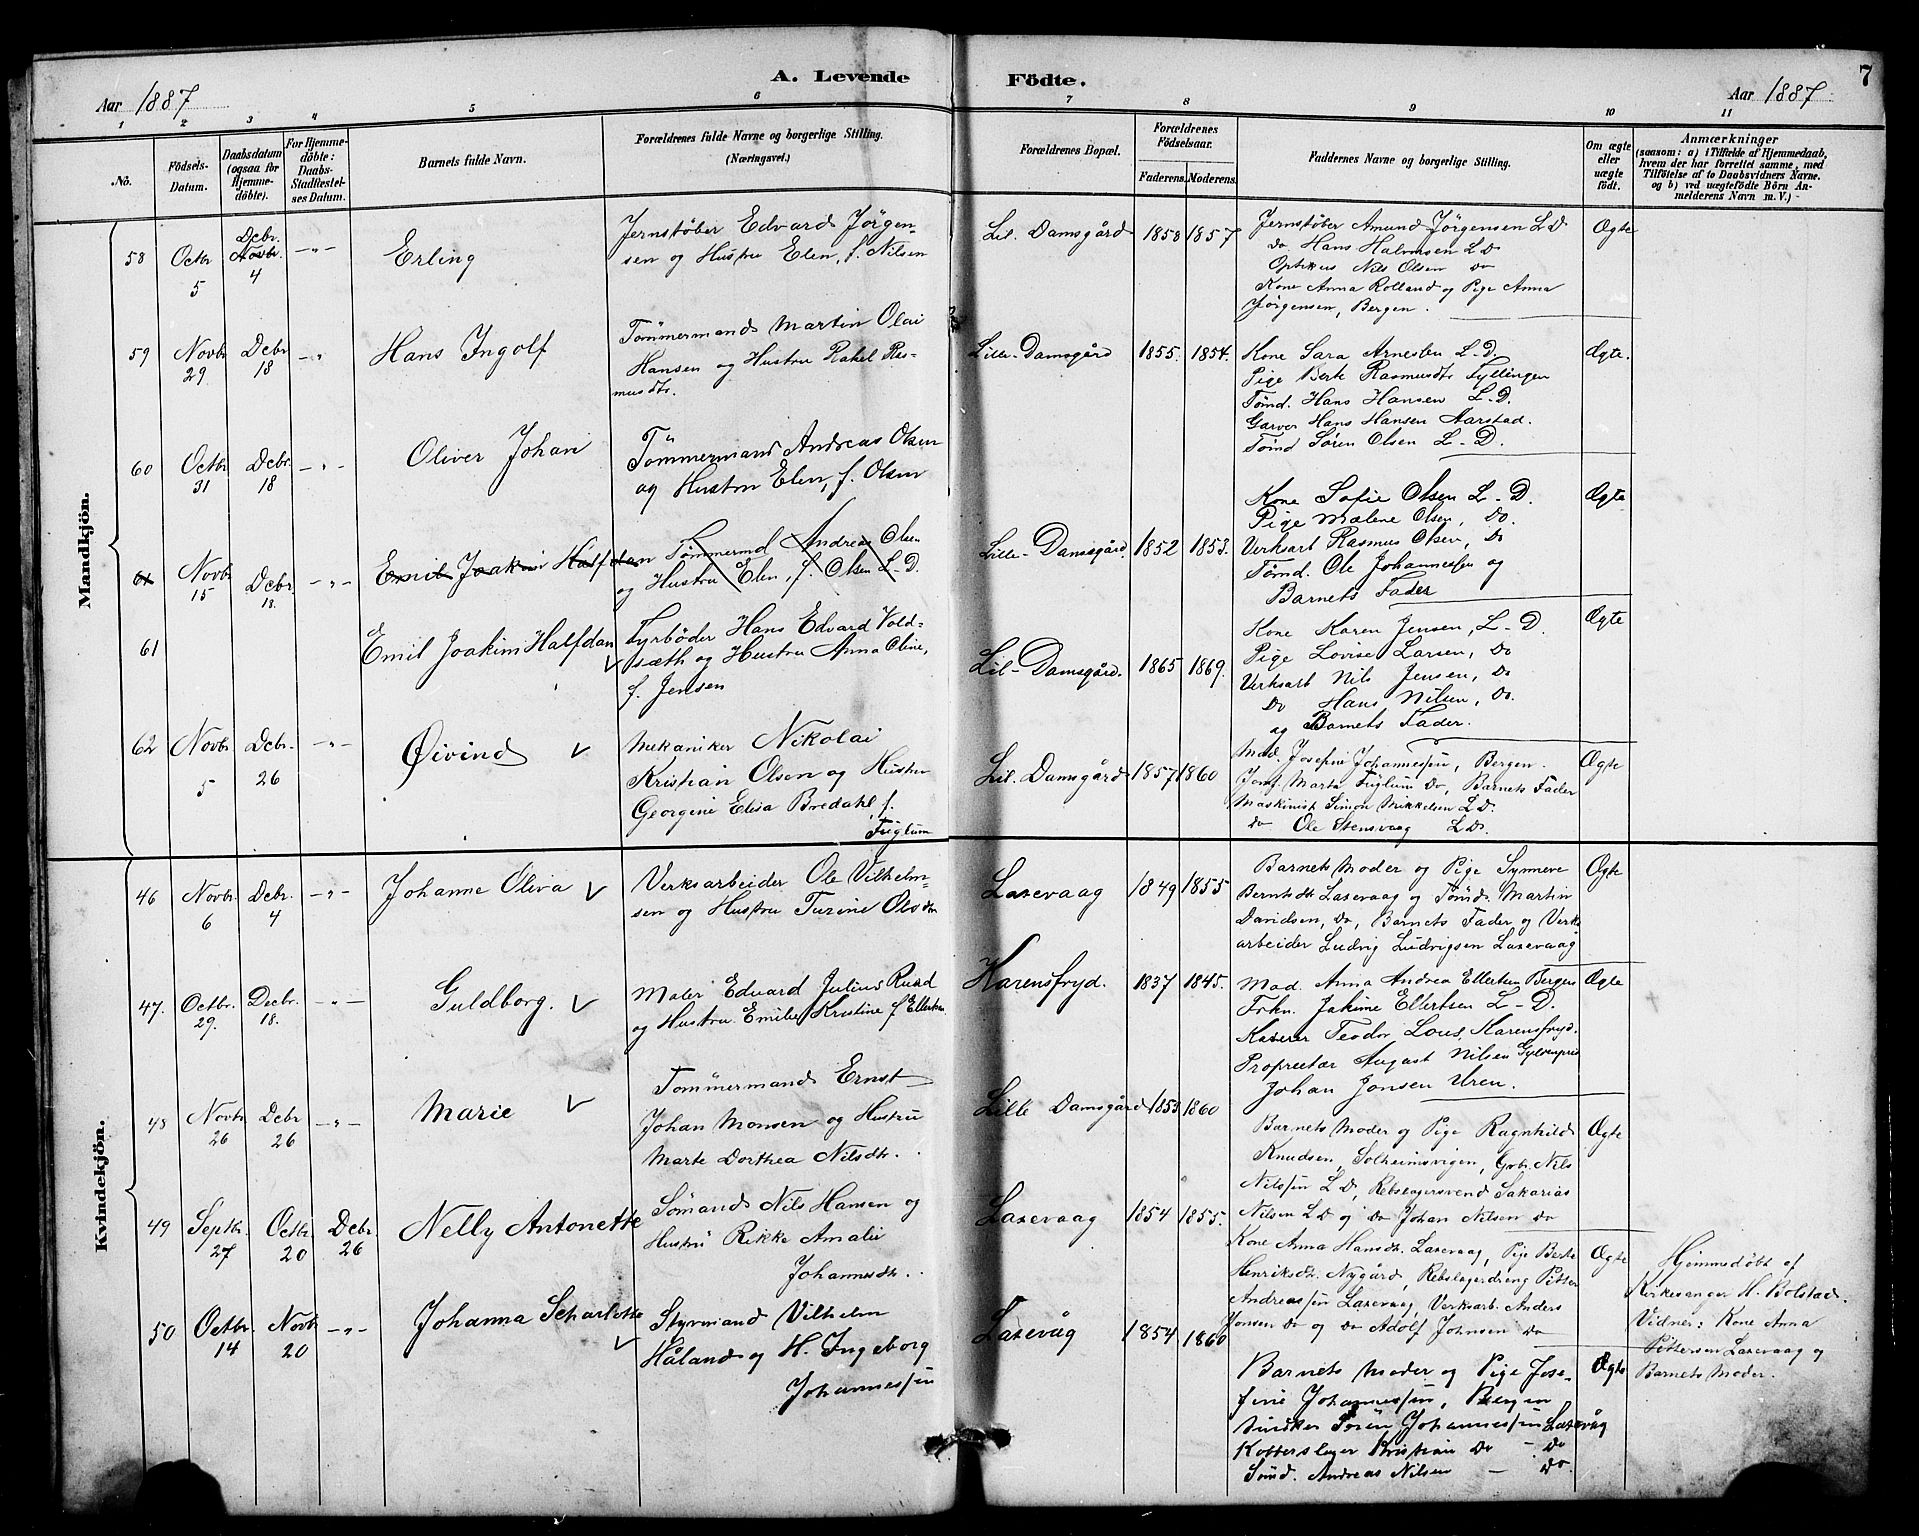 A. Levende Födte.
7
Aar 1887
Aar 1887
1 2 3 4 5 6 7 8 9 10 11
No.
Födsels-
Datum.
Daabsdatum
(ogsaa for
Hjemme-
döbte).
For Hjemme-
döbte:
Daabs-
Stadfæstel-
ses Datum.
Barnets fulde Navn.
Forældrenes fulde Navne og borgerlige Stilling.
(Næringsvei.)
Forældrenes Bopæl.
Forældrenes
Födselsaar.
Faderens. Moderens.
Faddernes Navne og borgerlige Stilling.
Om ægte
eller
uægte
födt.
Anmærkninger
(saasom: a) i Tilfælde af Hjemmedaab,
hvem der har forrettet samme, med
Tilföielse af to Daabsvidners Navne.
og b) ved uægtefödte Börn An-
melderens Navn m. V.)
Mandkjön.
58 Octbr 5 Debr. Novbr. 4 -"- Erling
Jernstøber Edvard Jørgen-
sen og Hustru Elen, f. Nilsen
Lil. Damsgård 1858 1857
Jernstøber Amund Jørgensen L D
Do Hans Halvorsen L D
Optikus Nils Olsen Do
Kone Anna Rolland og Pige Anna
Jørgensen, Bergen.
Øgte
59 Novbr 29 Debr 18 -"- Hans Ingolf
Tømmermand Martin Olai
Hansen og Hustru Rakel Ras-
musdtr.
Lille-Damsgård 1855. 1854.
Kone Sara Arnesten L-D.
Pige Berte Rasmusdtr Fyllingen
Tømd. Hans Hansen L-D.
Garver Hans Hansen Aarstad.
Tømd Søren Olsen L-D.
Ægte.
60 Octbr 31 Debr 18 -"- Oliver Johan
Tömmermand Andreas Olsen
og Hustru Elen, f. Olsen
Lille-Damsgård. 1852 1853.
Kone Sofie Olsen L-D.
Pige Malene Olsen, Do.
Verksarb Rasmus Olsen, Do
Tømd. Ole Johannessen og
Barnets Fader
Øgte
61 Novbr 15 Debr 18. -"- Emil Joakim Halfdan
Tømmermd Andreas Olsen
og Hustru Elen, f. Olsen L-D.
61 Emil Joakim Halfdan
Fyrbøder Hans Edvard Vold-
sæth og Hustru Anna Oline,
f. Jensen
Lil-Damsgård. 1865 1869.
Kone Karen Jensen, L-D.
Pige Lovise Larsen, Do
Verksarb Nils Jensen, Do
Do Hans Nilsen, Do.
og Barnets Fader.
Øgte
62 Novbr 5 Debr. 26 -"- Øivind
Mekaniker Nikolai
Kristian Olsen og Hustru
Georgine Elisa Bredahl, f.
Fuglum
Lil. Damsgård 1857 1860
Mad. Josefine Johannessen, Bergen.
Jomf. Marta Fuglum Do, Barnets Fader
Maskinist Simon Mikkelsen L D.
Do Ole Stensvaag L D.
Øgte
Kvindekjön.
46 Novbr 6 Debr. 4 -"- Johanne Oliva
Verksarbeider Ole Vilhelm-
sen og Hustru Turine Olsdtr
Laxevaag 1849 1855
Barnets Moder og Pige Synneve
Berntsdtr Laxevaag og Tømd. Martin
Davidsen, Do, Barnets Fader og Verks
arbeider Ludvig Ludvigsen Laxevaag
Øgte
47. Octbr. 29 Decbr. 18. -"- Guldborg.
Maler Edvard Julius Ruud
og Hustru Emilie Kristine f Ellertsen
Karensfryd. 1837 1845.
Mad. Anna Andrea Ellertsen Bergen
Frkn. Jakime Ellertsen L-D.
Kaserer Teodor Lous, Karensfryd.
Proprietær August Nilsen
Johan Jonsen Uren.
Øgte
48 Novbr 26 Debr 26 -"- Marie
Tommermand Ernst
Johan Monsen og Hustru
Marte Dorthea Nilsdtr.
Lille Damsgård 1853 1860
Barnets Moder og Pige Ragnhild
Knudsen, Solheimsvigen, Grb. Nils
Nilssen L D, Rebslagersvend Sakarias
Nilsen L D og Do Johan Nilsen Do
Øgte
49 Septbr. 27 Octbr. 20 Debr 26 Nelly Antonette
Sømand Nils Hansen og
Hustru Rikke Amalie
Johannesdtr.
Laxevaag 1854 1855.
Kone Anna Hansdtr. Laxevaag, Pige Berte
Henriksdtr. Nygård, Rebslagerdreng Petter
Andreassen Laxevaag, Verksarb. Anders
Jonsen Do og Do Adolf Johnsen Do
Øgte
Hjemmedøbt af
Kirkesanger H. Bolstad.
Vidner: Kone Anna
Pettersen Laxevaag og
Barnets Moder.
50 Octbr. 14 Novb 20 -"- Johanna Scharlotte
Styrmand Vilhelm
Håland og H. Ingeborg
Johannessen
Laxevåg 1854 1860
Barnets Moder og Pige Jose-
fine Johannessen, Bergen
Søren Johannessen Laxevåg
Kobberslager Kristian Do - Do
Sømd. Andreas Nilsen - Do.
Øgte